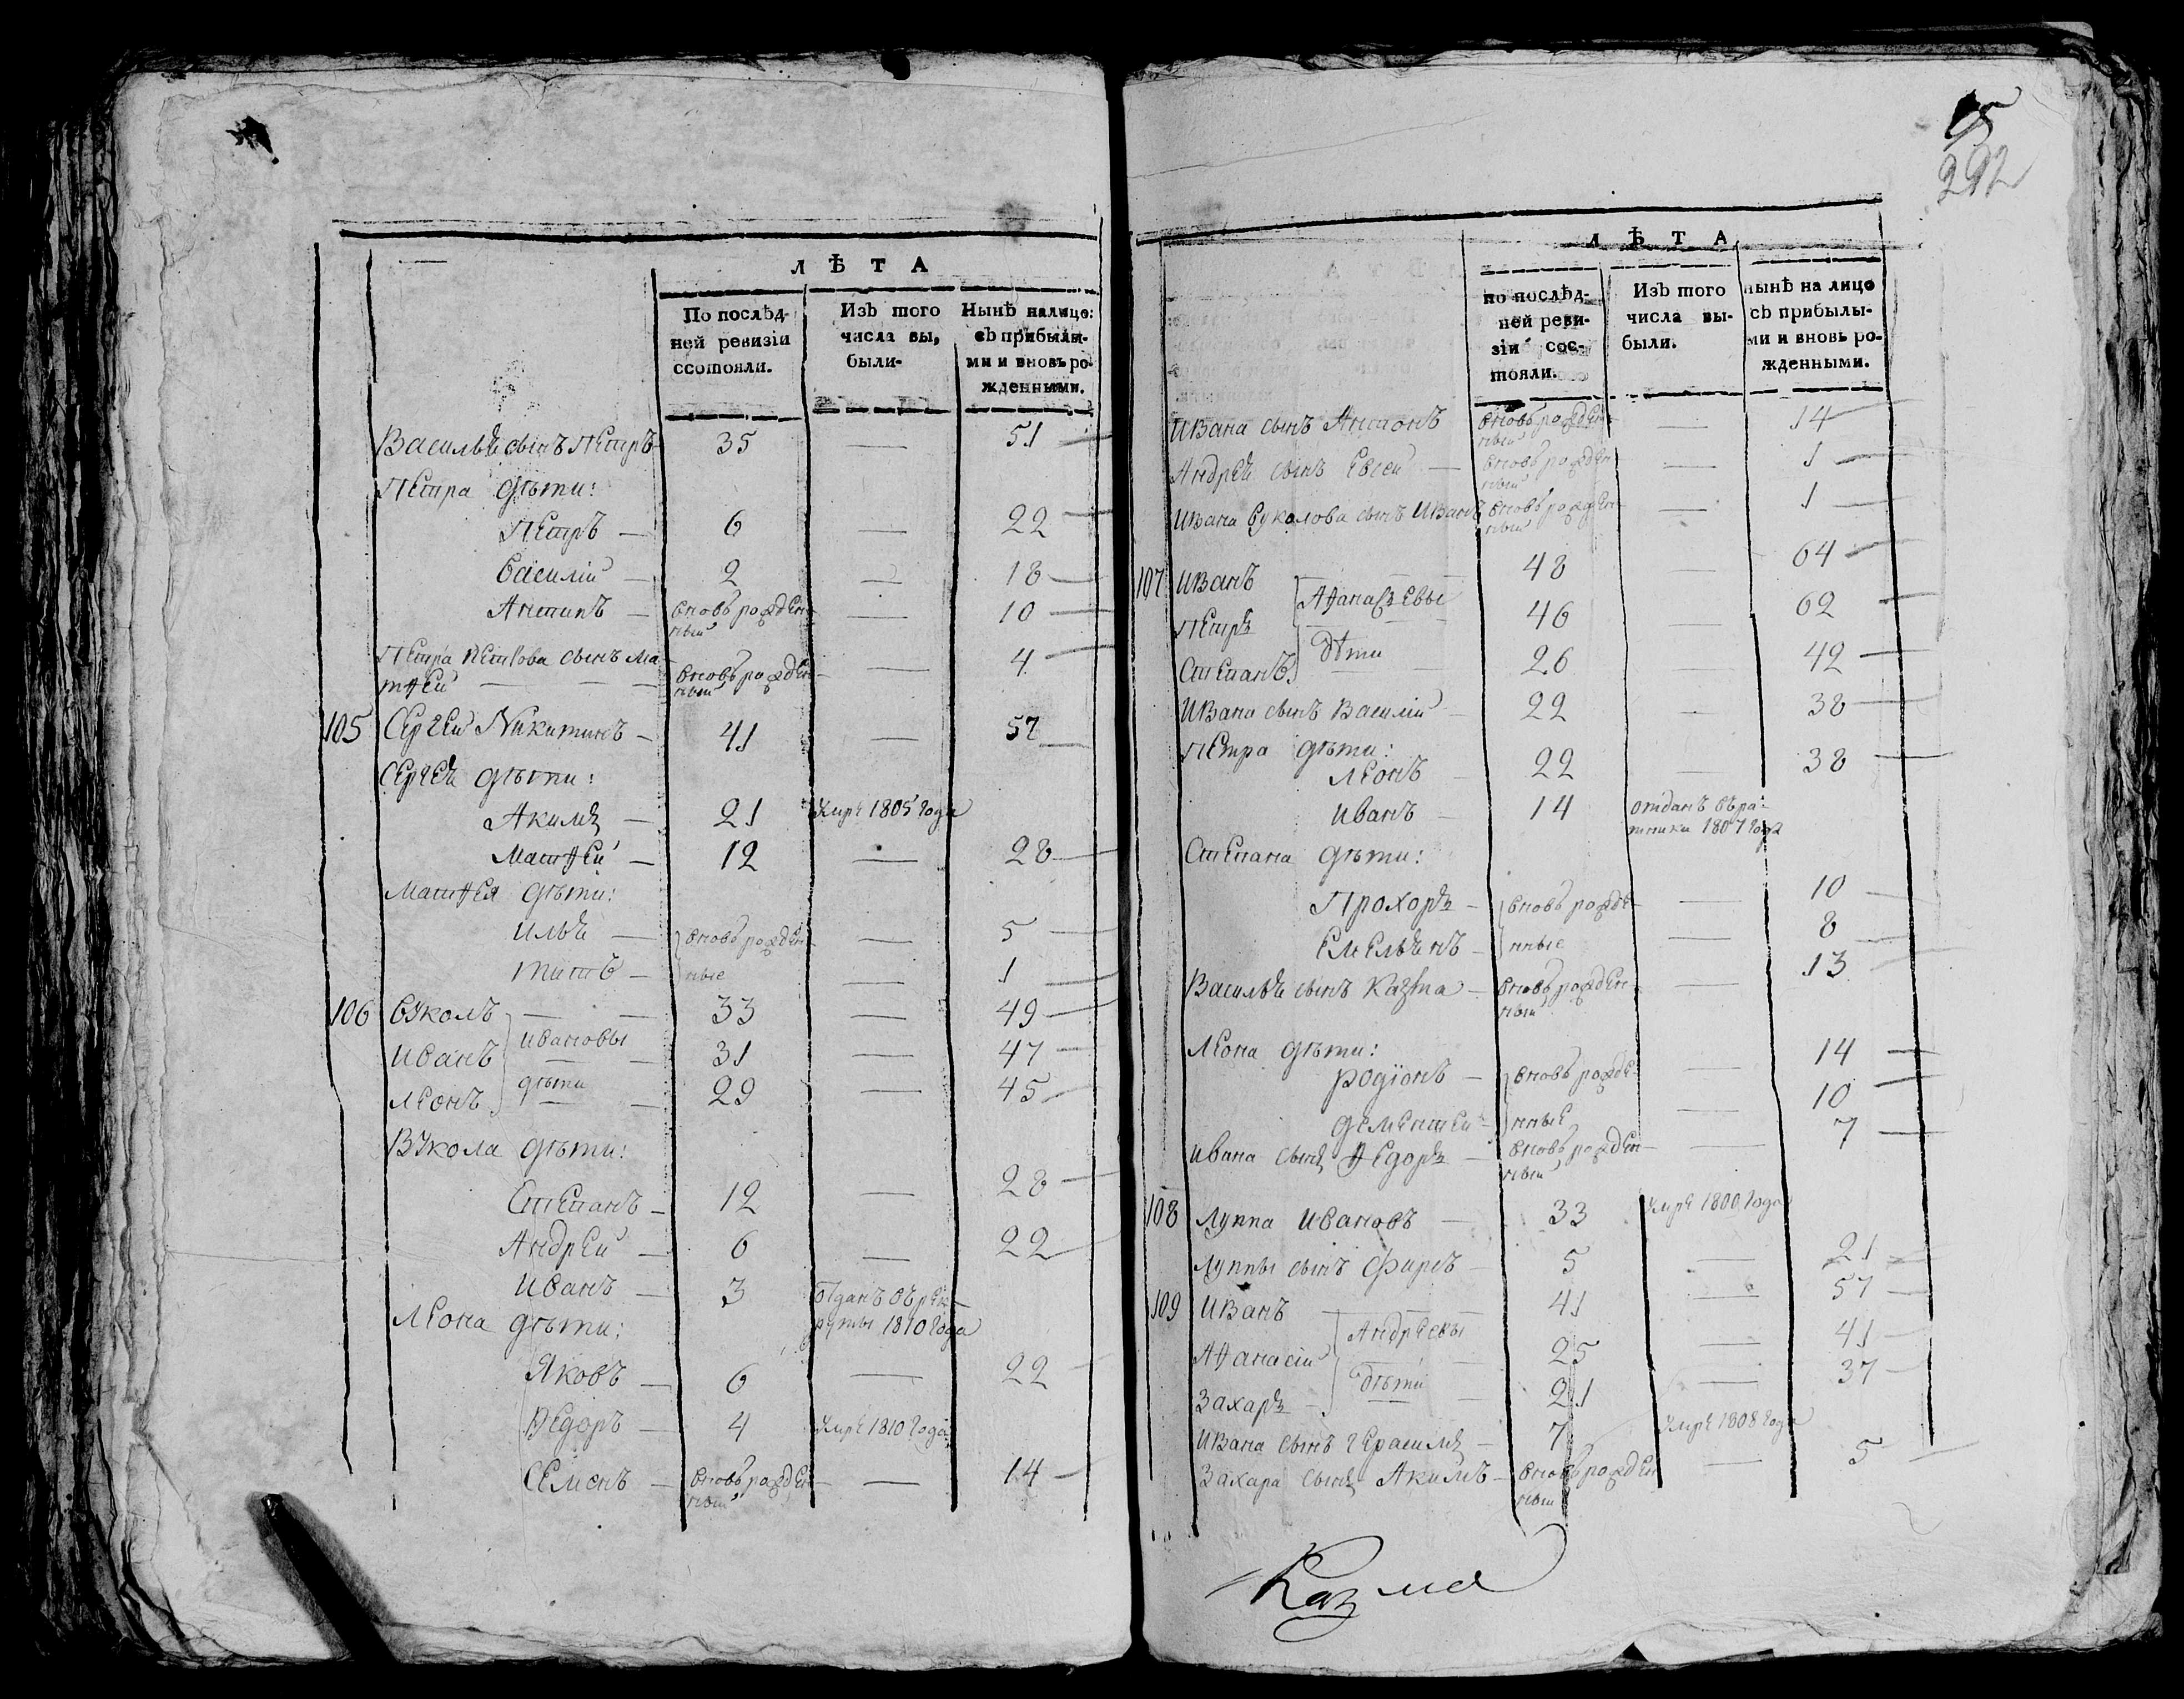 Л Ѣ Т А
По послѣд-
ней ревизіи
ссотояли.
Изъ того
числа вы,
были-
Нынѣ налицо:
съ прибылы-
ми и вновь ро-
жденными.
Васильѧ сынъ Петръ 35 — 51 —
Петра дѣти:
Петръ — 6 — 22
Василій — 2 — 18 —
Антипъ — вновь рожден-
ный — 10 —
Петра Петрова сынъ Ма-
тѳей — — — вновь рожден-
ный — 4 —
105 Сергей Никитинъ — 41 — 57
Сергеѧ дѣти:
Акимъ — 21 Умре 1805 года
Матѳей — 12 — 28 —
Матѳея дѣти:
Ильѧ — вновь рожден- — 5 —
Титъ — ные — 1 —
106 Вуколъ — — 33 — 49 —
Ивановы
Иванъ — — 31 — 47 —
дѣти
Леонъ — — 29 — 45 —
Вукола дѣти:
Степанъ — 12 — 28 —
Андрей — 6 — 22 —
Иванъ — 3 Отданъ въ рек-
Леона дѣти: руты 1810 года
Яковъ — 6 — 22 —
Ѳедоръ — 4 Умре 1810 года
Семенъ — вновь рожден-
ный — 14 —
95
292
Л Ѣ Т А
по послѣд-
ней реви-
зіи сос-
тояли.
Изъ того
числа вы-
были.
нынѣ на лицо
съ прибылы-
ми и вновь ро-
жденными.
Ивана сынъ Антонъ вновь рожден-
ный — 14 —
Андреѧ сынъ Евсей — вновь рожден-
ный — 1 —
Ивана Вуколова сынъ Иванъ вновь рожден-
ный — 1 —
107 Иванъ — — 48 — 64 —
Аѳанасьевы
Петръ — 46 — 62 —
дѣти
Степанъ — — 26 — 42 —
Ивана сынъ Василій — 22 — 38 —
Петра дѣти:
Леонъ — 22 — 38 —
Иванъ — 14 отданъ въ ра-
тники 1807 года
Степана дѣти:
Прохоръ — вновь рожде- — 10 —
Емельѧнъ — нные — 8 —
Васильѧ сынъ Казма — вновь рожден-
ный — 13 —
Леона дѣти:
Родіонъ — вновь рожде- — 14 —
Дементей — нные — 10 —
Ивана сынъ Ѳедоръ — вновь рожден-
ный — 7 —
108 Луппа Ивановъ — 33 Умре 1800 года
Луппы сынъ Фирсъ — 5 — 21 —
109 Иванъ — — 41 — 57 —
Андреевы
Аѳанасій — 25 — 41 —
дѣти
Захаръ — — 21 — 37 —
Ивана сынъ Герасимъ — 7 Умре 1808 года
Захара сынъ Акимъ — вновь рожден-
ный — 5 —
Казма